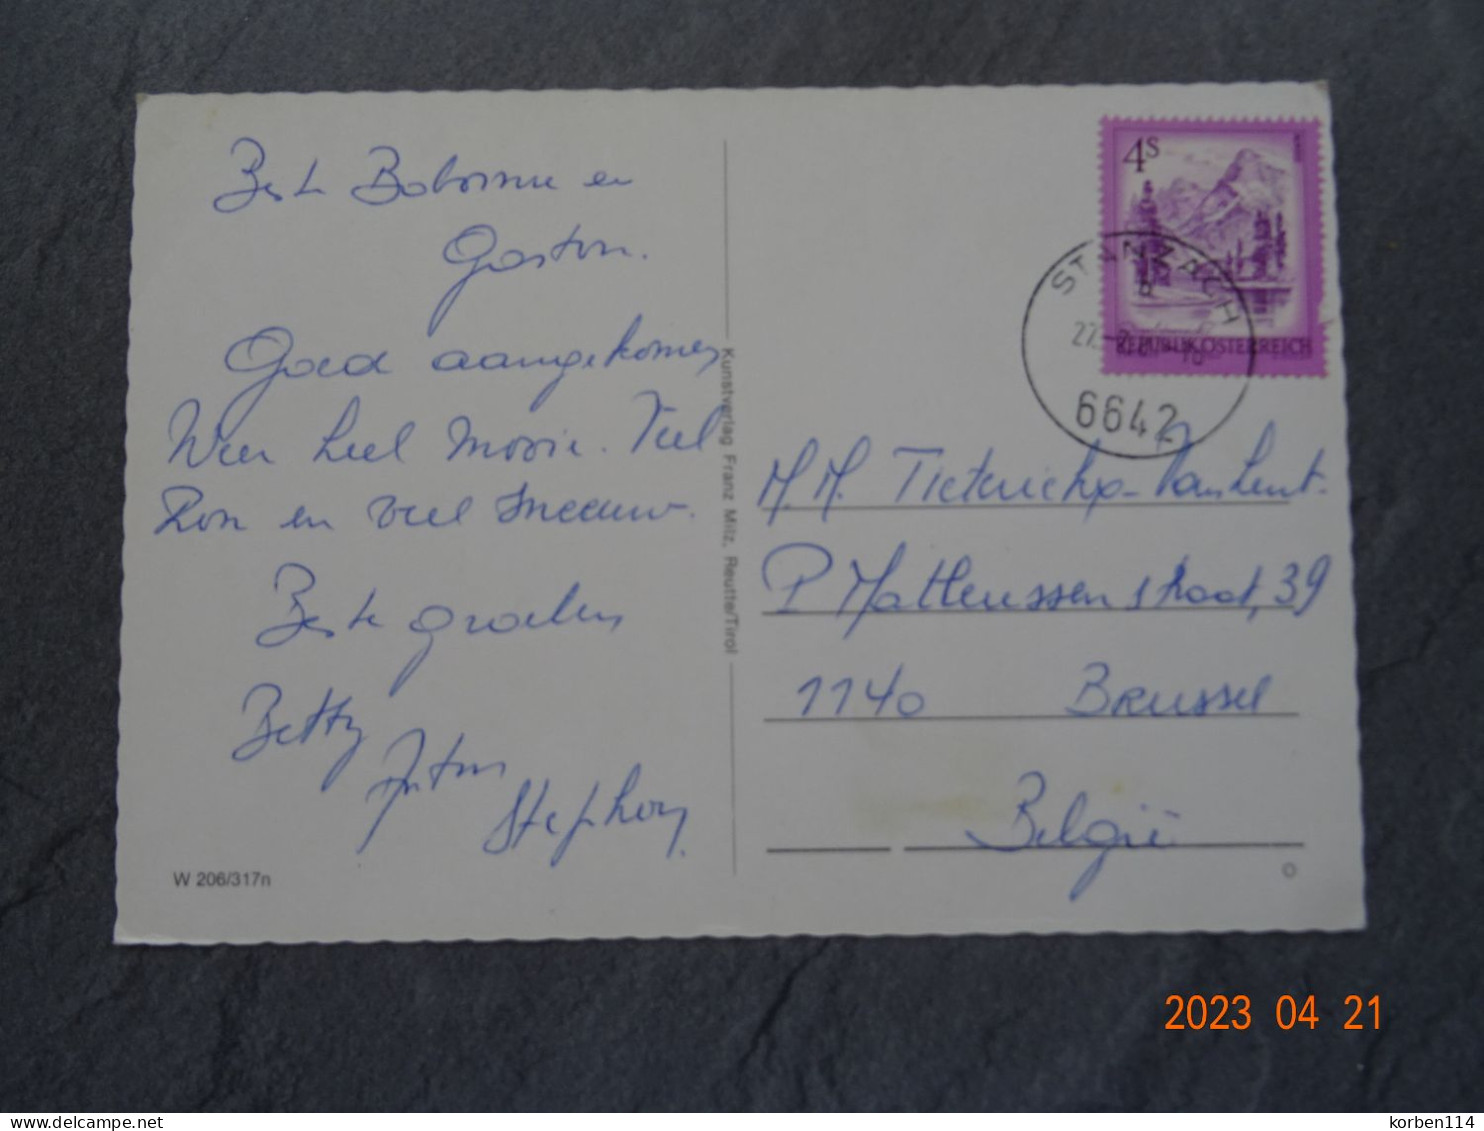 Beste Bobonne en
Gaston.
Goed aangekomen
Weer heel mooie. Veel
Zon en veel sneeuw.
Beste groeten
Betty
Anton
Stephan
W 206/317n
Kunstverlag Franz Milz, Reutte/Tirol
4S
REPUBLIK ÖSTERREICH
STANZACH
27.
6642
M.M. Tieterickx-Van Lent.
P Mattheussenstraat, 39
1140 Brussel
België
2023 04 21
korben114